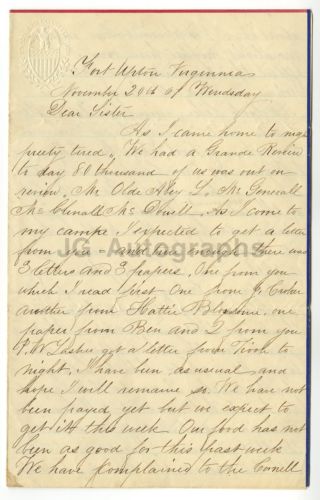 Fort Upton Virginnia
November 20th 61 Wendsday
Dear Sister
As I came home to night
preety tired, We had a Grande Review
to day 80 thousand of us was out on
review, Mr Olde Abey L. Mc Generall
Mc Clenall Mc Dowell. As I come to
my campe I expected to get a letter
from you and sure enough there was
3 letters and 3 papers, One from you
which I read first One from J.
another from Hattie Blossome, one
paper from Ben and 2 from you
P.W Lasher got a letter from Tivoli to
night, I have ben, as usual, and
hope I will remane so. We have not
been payed yet but we expect to
get it this week Our food has not
been as good for this past week
We have komplained to the Cornell
JG Autographs